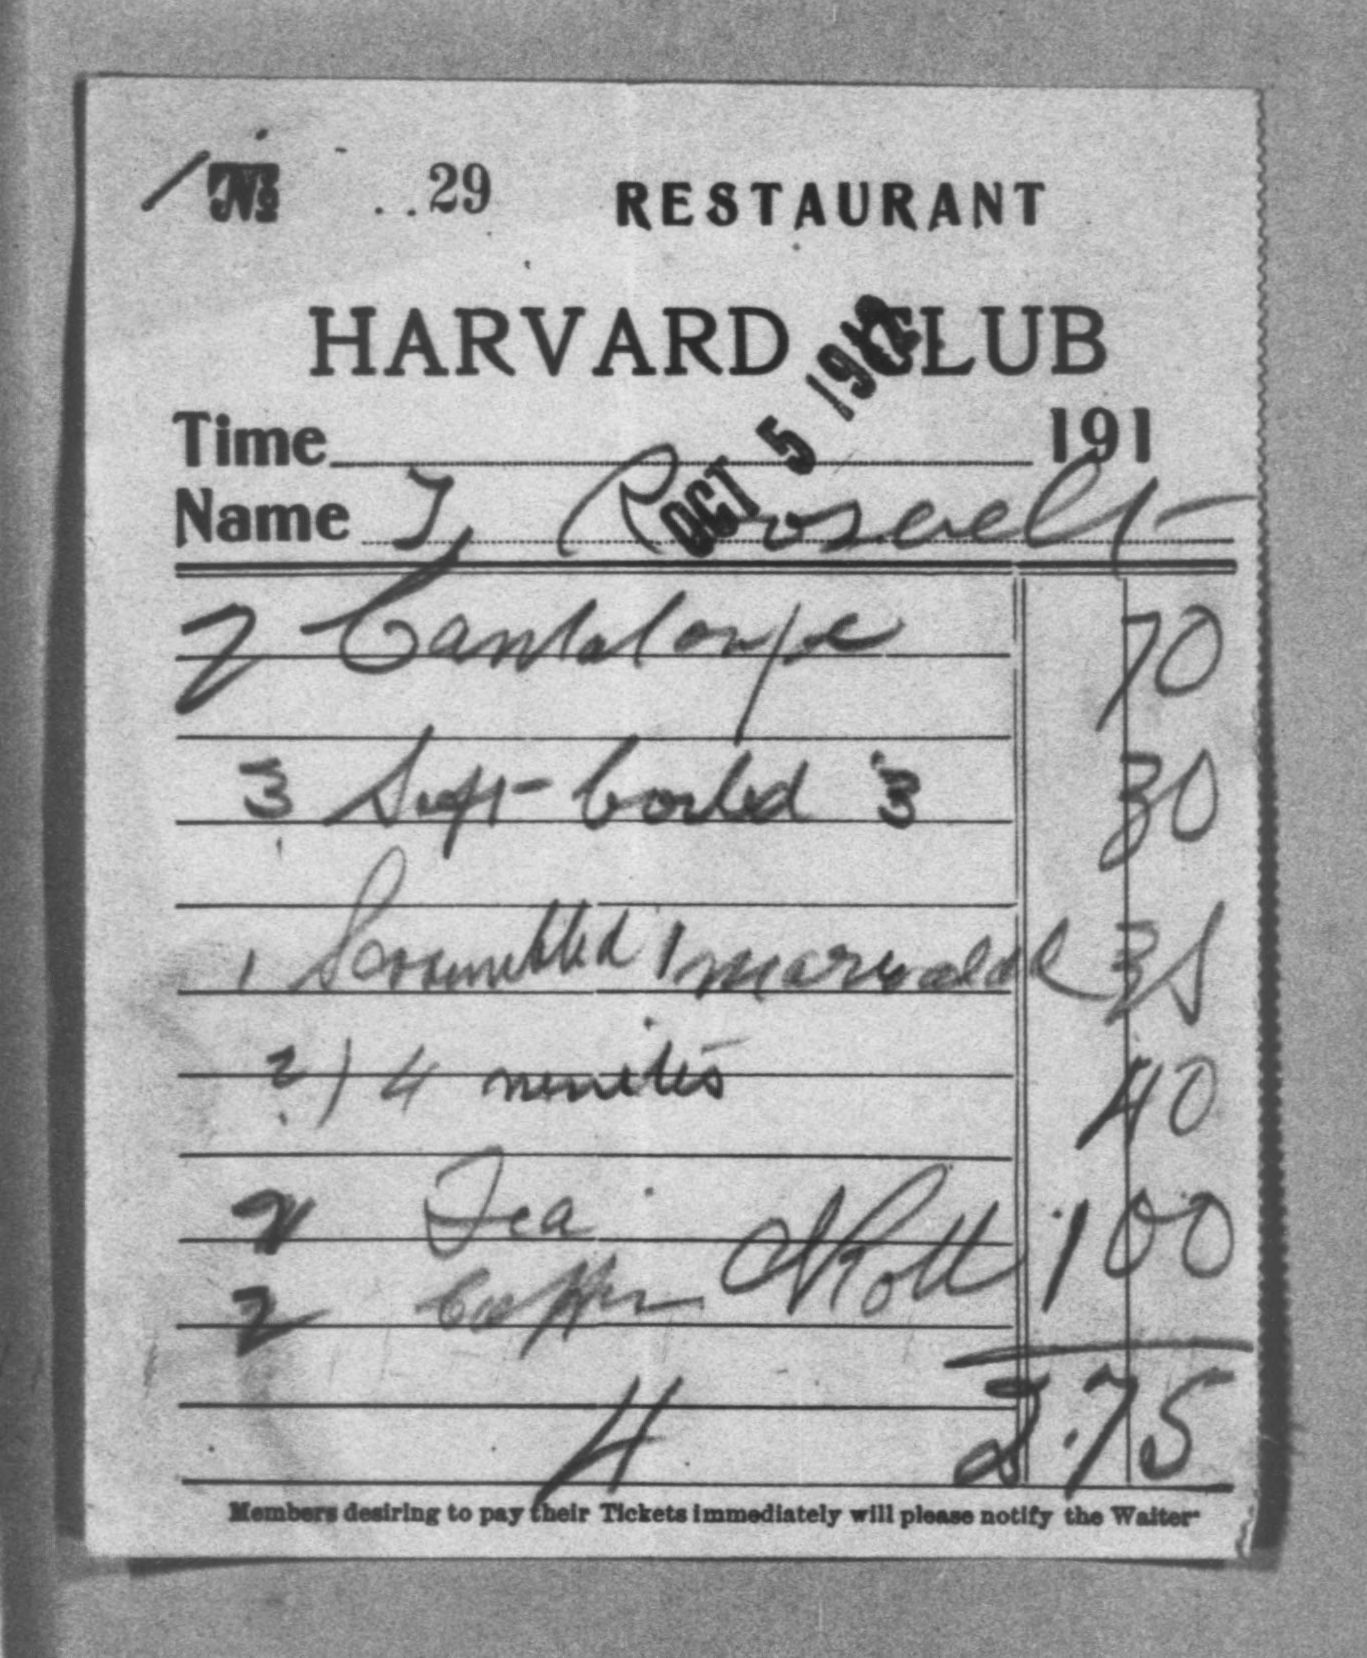 No 29 RESTAURANT
HARVARD CLUB
OCT 5 1912
Time 191
Name T, Roosevelt
2 Cantaloupe 70
3 Soft boiled 3 30
1 Scrambled 1 35
2) 4 minutes 40
2 Tea
2 Coffee Roll 1 00
4 2.75
Members desiring to pay their Tickets immediately will please notify the Waiter